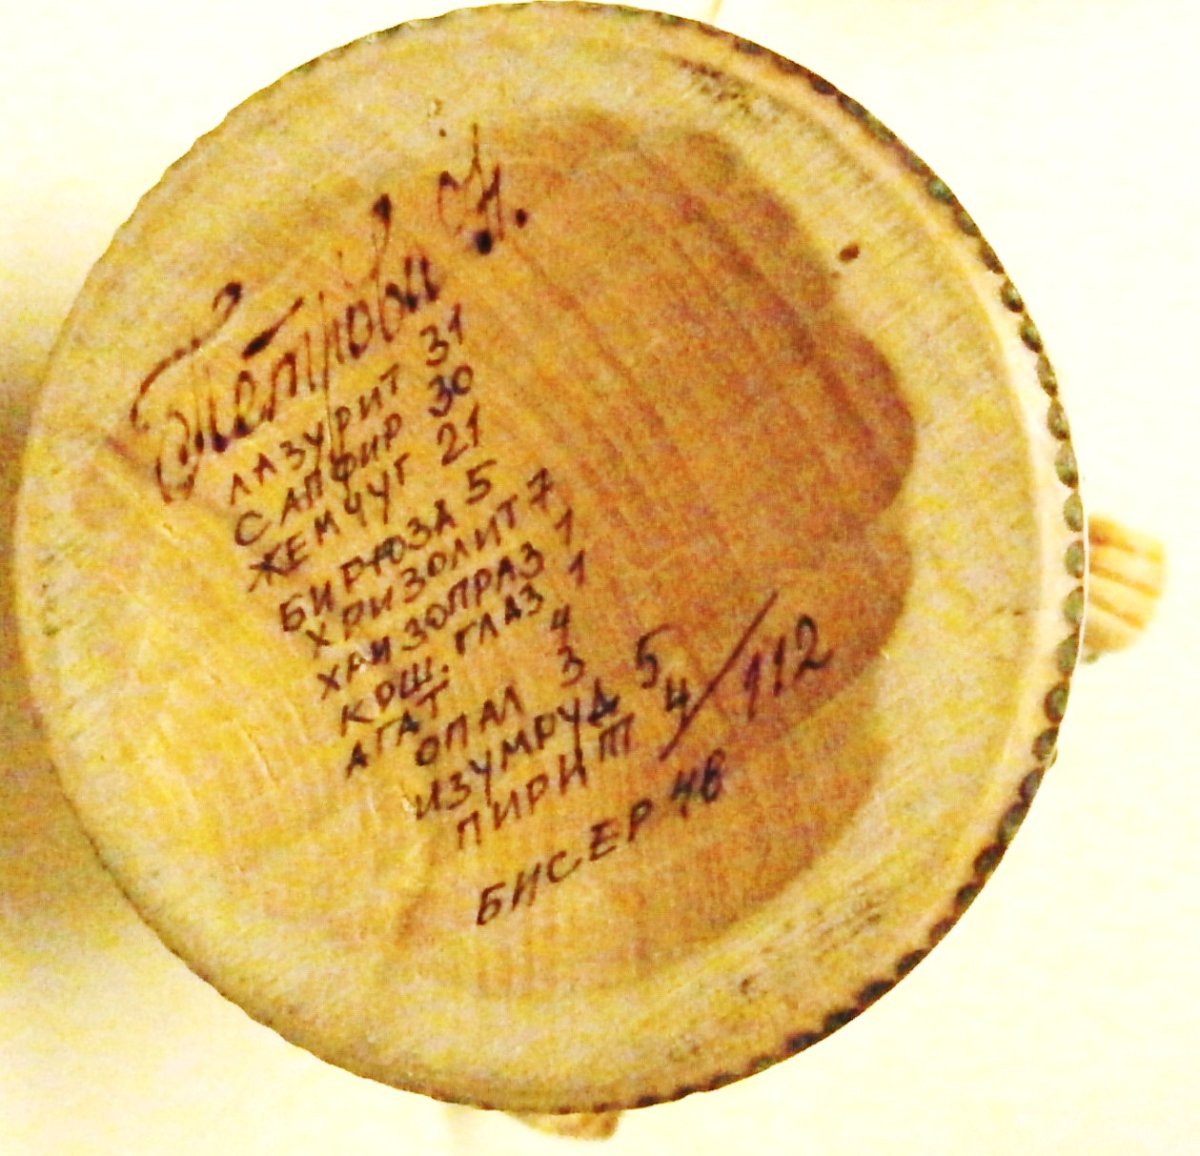 Петровы И.
ЛАЗУРИТ 31
САПФИР 30
ЖЕМЧУГ 21
БИРЮЗА 5
ХРИЗОЛИТ 7
ХРИЗОПРАЗ 1
КОШ. ГЛАЗ 1
АГАТ 4
ОПАЛ 3
ИЗУМРУД 5
ПИРИТ 4 / 112
БИСЕР 48